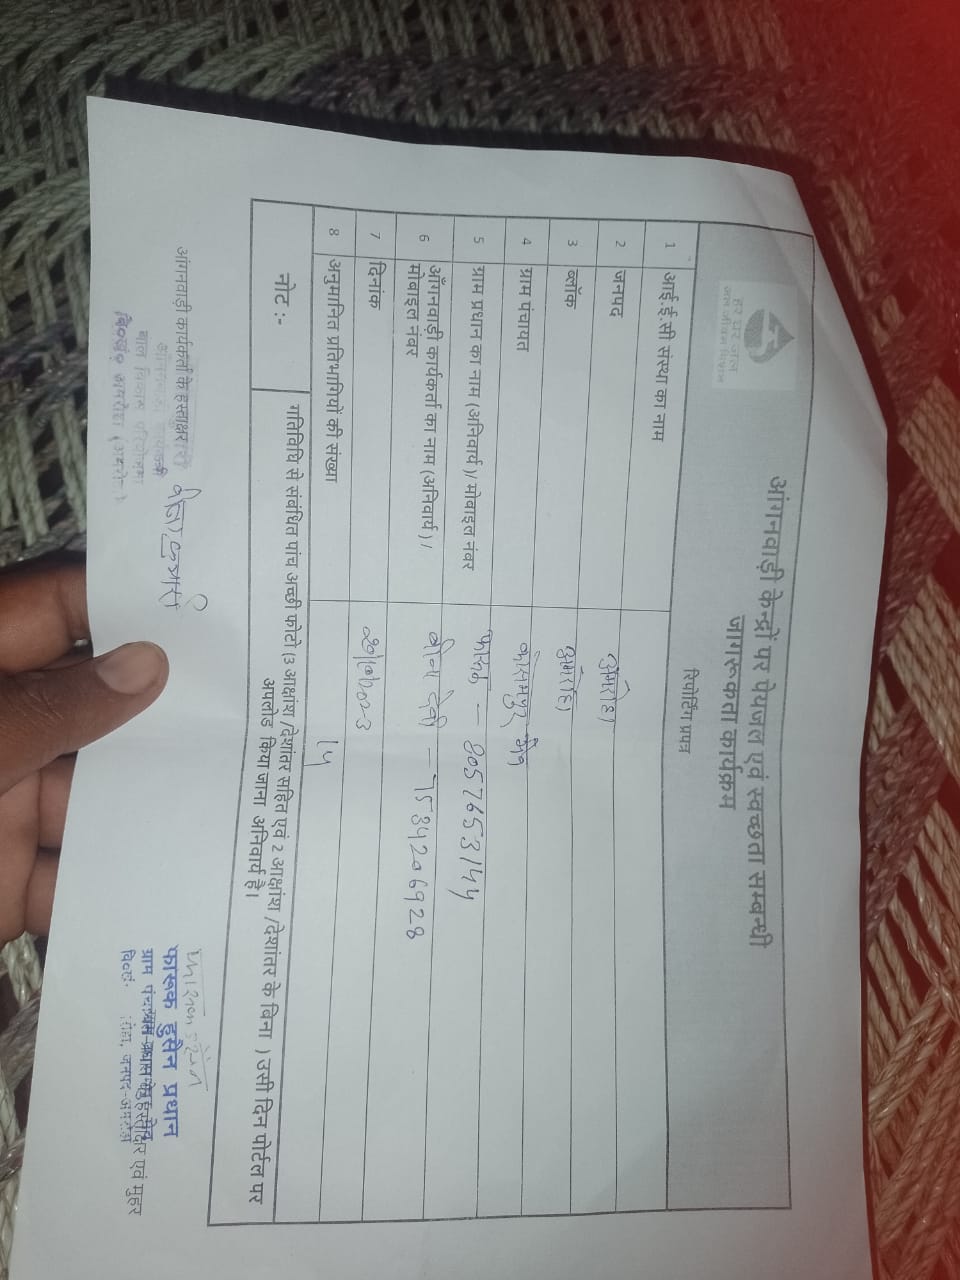 हर घर जल
जल जीवन मिशन
आंगनवाड़ी केन्द्रों पर पेयजल एवं स्वच्छता सम्बन्धी
जागरूकता कार्यक्रम
रिपोर्टिंग प्रपत्र
1 आई.ई.सी संस्था का नाम
2 जनपद अमरोहा
3 ब्लॉक अमरोहा
4 ग्राम पंचायत
5 ग्राम प्रधान का नाम (अनिवार्य)/ मोबाइल नंबर 8057653144
6 आँगनवाड़ी कार्यकर्ता का नाम (अनिवार्य)/ देवी – 7534206928
मोबाइल नंबर
7 दिनांक
8 अनुमानित प्रतिभागियों की संख्या 14
नोट :- गतिविधि से संबंधित पांच अच्छी फोटो (3 आक्षांश /देशांतर सहित एवं 2 आक्षांश /देशांतर के बिना ) उसी दिन पोर्टल पर
अपलोड किया जाना अनिवार्य है।
आंगनवाड़ी कार्यकर्ता के हस्ताक्षर
बाल विकास परियोजना
फारूक हुसैन प्रधान
ग्राम पंचायत
हस्ताक्षर एवं मुहर
जनपद-अमरोहा